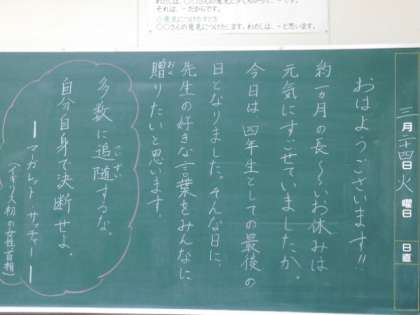 〇〇さんの発見につけたします。わたしは、～と思います。
三月二十四日火曜日
日直
おはようございます!!
約一カ月の長～いお休みは
元気にすごせていましたか。
今日は四年生としての最後の
日となりました。そんな日に、
先生の好きな言葉をみんなに
贈りたいと思います。
おく
多数に追随するな。
ついずい
自分自身で決断せよ。
ーマーガレット・サッチャーー
(イギリス初の女性首相)